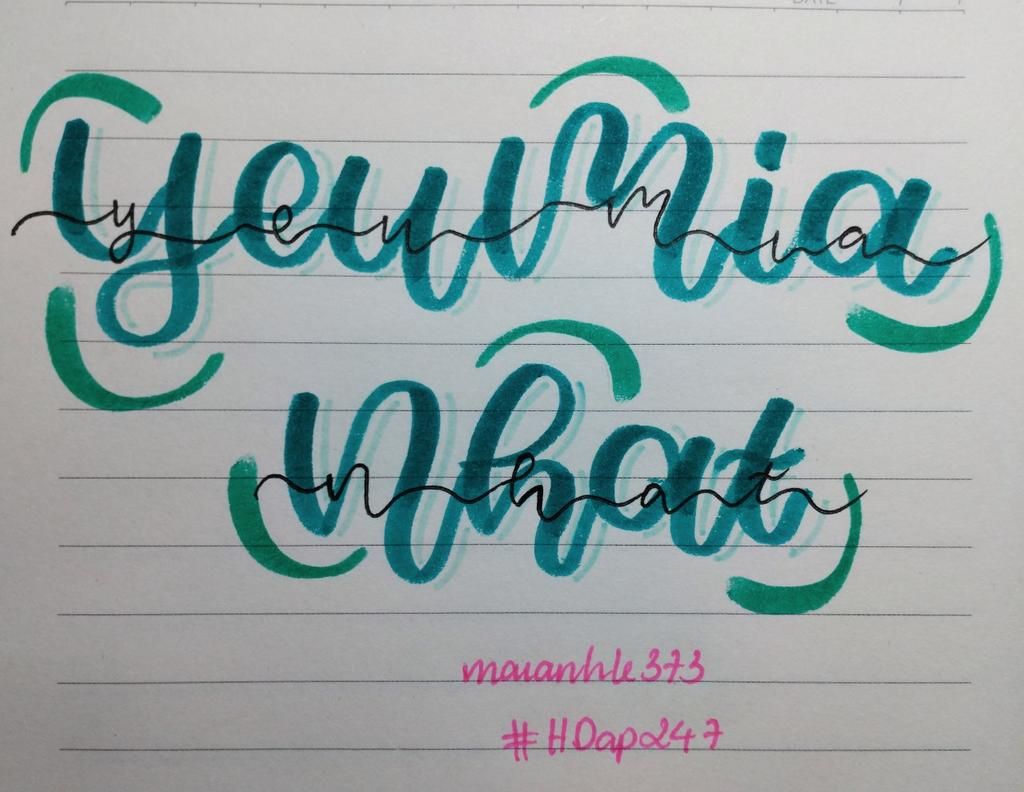 DATE
yeu Mia
yeu mia
Nhat
nhat
maianhle373
#HDap247